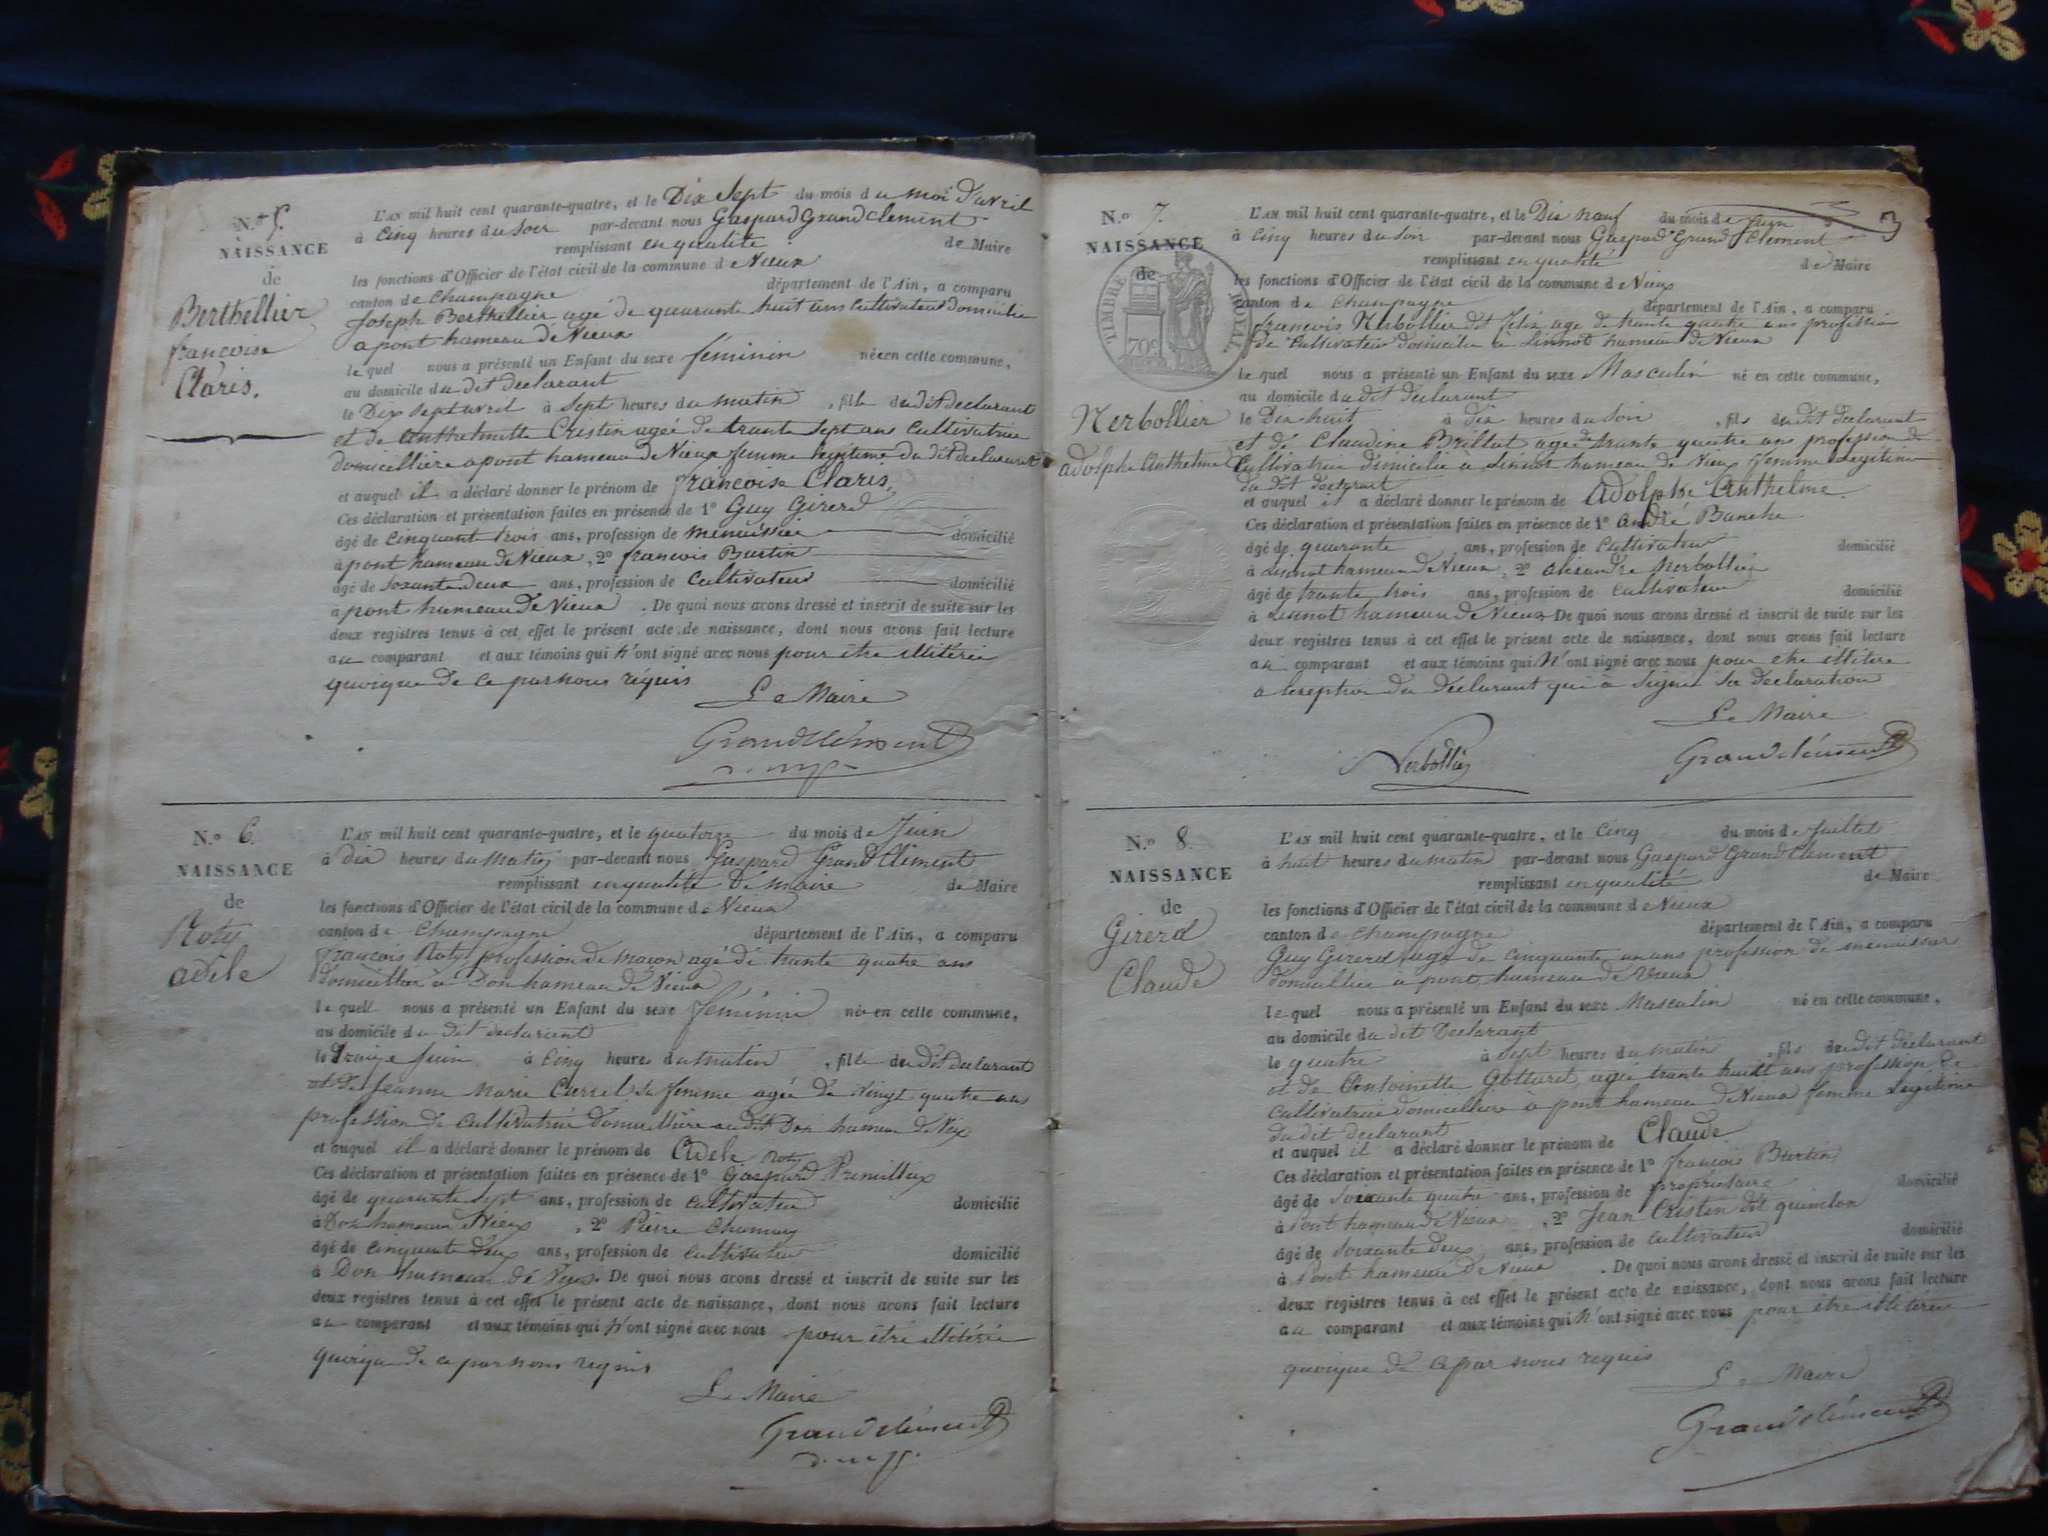 N.º 5.
NAISSANCE
de
Berthellier
francoise
Claris.
L'AN mil huit cent quarante-quatre, et le Dix Sept du mois du moi d'avril
à Cinq heures du Soir par-devant nous Gaspard Grand Clement
remplissant en qualité de Maire
les fonctions d'Officier de l'état civil de la commune de Vieux
canton de Champagne département de l'Ain, a comparu
Joseph Berthellier agé de quarante huit ans Cultivateur domicilie
a pont hameau de Vieux
le quel nous a présenté un Enfant du sexe féminin née en cette commune,
au domicile du dit declarant
le Dix Sept avril à Sept heures du matin, fille du dit declarant
et de anthelmette Cristin agée de trante Sept ans Cultivatrice
domicilliere a pont hameau de Vieux femme legitime du dit declarant
et auquel il a déclaré donner le prénom de francoise Claris.
Ces déclaration et présentation faites en présence de 1º Guy Girerd
âgé de Cinquant trois ans, profession de menuissie domicilié
à pont hameau de Vieux, 2º francois Burtin
âgé de Soxante deux ans, profession de Cultivateur domicilié
à pont hameau de Vieux. De quoi nous avons dressé et inscrit de suite sur les
deux registres tenus à cet effet le présent acte de naissance, dont nous avons fait lecture
au comparant et aux témoins qui n'ont signé avec nous pour être illitérie
quoique de ce par nous réquis
Le Maire
Grandclément
N.º 6.
NAISSANCE
de
Roty
adèle
L'AN mil huit cent quarante-quatre, et le quatorze du mois de Juin
à dix heures du Matin par-devant nous Gaspard Grand Clément
remplissant en qualité de maire de Maire
les fonctions d'Officier de l'état civil de la commune de Vieux
canton de Champagne département de l'Ain, a comparu
francois Roty profession de maçon agé de trante quatre ans
domicillié à Don hameau de Vieux
le quel nous a présenté un Enfant du sexe féminin née en cette commune,
au domicile du dit declarant
le Traize Juin à Cinq heures du matin, fille du dit declarant
et de Jeanne Marie femme agée de Vingt quatre ans
profession de Cultivatrice domicilliere au dit Don hameau de Vieux
et auquel il a déclaré donner le prénom de Adele Roty
Ces déclaration et présentation faites en présence de 1º Gaspard
âgé de quarante Sept ans, profession de Cultivateur domicilié
à Don hameau de Vieux, 2º Pierre
âgé de Cinquente deux ans, profession de Cultivateur domicilié
à Don hameau de Vieux. De quoi nous avons dressé et inscrit de suite sur les
deux registres tenus à cet effet le présent acte de naissance, dont nous avons fait lecture
au comparant et aux témoins qui n'ont signé avec nous pour être illitérie
quoique de ce par nous requis
Le Maire
Grandclément
3
N.º 7.
NAISSANCE
de
TIMBRE ROYAL
70 c
Nerbollier
adolphe anthelme
L'AN mil huit cent quarante-quatre, et le Dix neuf du mois de Juin
à Cinq heures du Soir par-devant nous Gaspard Grand Clement
remplissant en qualité de Maire
les fonctions d'Officier de l'état civil de la commune de Vieux
canton de Champagne département de l'Ain, a comparu
francois Nerbollier dit felix age de trante quatre ans profession
de Cultivateur domicilie a Linnot hameau de Vieux
le quel nous a présenté un Enfant du sexe Masculin né en cette commune,
au domicile du dit declarant
le Dix huit à dix heures du Soir, fils du dit declarant
et de Claudine Brillat agee de trante quatre ans profession de
Cultivatrice domicilie a Linnot hameau de Vieux femme Legitime
du dit declarant
et auquel il a déclaré donner le prénom de Adolphe Anthelme.
Ces déclaration et présentation faites en présence de 1º André
âgé de quarante ans, profession de Cultivateur domicilié
à Linnot hameau de Vieux, 2º Nerbollier
âgé de trante trois ans, profession de Cultivateur domicilié
à Linnot hameau de Vieux De quoi nous avons dressé et inscrit de suite sur les
deux registres tenus à cet effet le présent acte de naissance, dont nous avons fait lecture
au comparant et aux témoins qui n'ont signé avec nous pour etre illitere
a leseption du declarant qui à Signé sa declaration
Le Maire
Nerbollier
Grandclément
N.º 8.
NAISSANCE
de
Girerd
Claude
L'AN mil huit cent quarante-quatre, et le Cinq du mois de Juillet
à huit heures du matin par-devant nous Gaspard Grand Clement
remplissant en qualité de Maire
les fonctions d'Officier de l'état civil de la commune de Vieux
canton de Champagne département de l'Ain, a comparu
Guy Girerd age de cinquante un ans profession de menuissier
domicillier à pont hameau de Vieux
le quel nous a présenté un Enfant du sexe Masculin né en cette commune,
au domicile du dit Declarant
le quatre à Sept heures du matin, fils du dit déclarant
et de Antoinette Gotturet agée trante huit ans profession de
Cultivatrice domicilliere à pont hameau de Vieux femme Legitime
du dit declarant
et auquel il a déclaré donner le prénom de Claude
Ces déclaration et présentation faites en présence de 1º francois Burtin
âgé de Soixante quatre ans, profession de propriétaire domicilié
à Pont hameau de Vieux, 2º Jean Cristin dit quinclon
âgé de Soixante deux ans, profession de Cultivateur domicilié
à Pont hameau de Vieux. De quoi nous avons dressé et inscrit de suite sur les
deux registres tenus à cet effet le présent acte de naissance, dont nous avons fait lecture
au comparant et aux témoins qui n'ont signé avec nous pour être illitérie
quoique de ce par nous requis
Le Maire
Grandclément